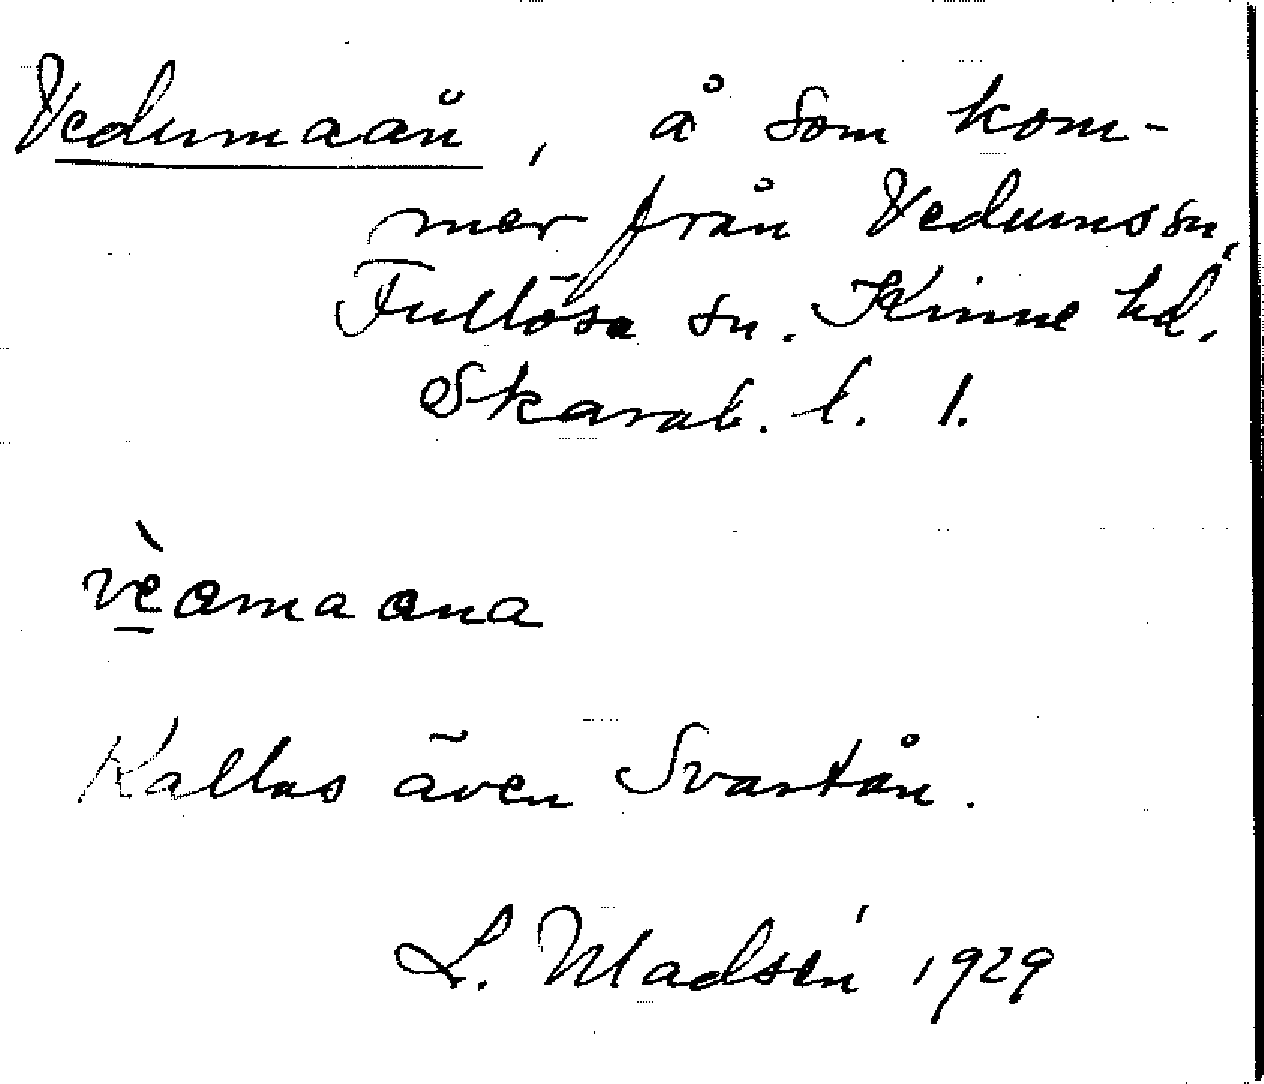 Vedumaån, å som kom-
mer från Vedums sn,
Fullösa sn. Kinne hd,
Skarab. l. 1.
vèamaana
Kallas även Svartån.
L. Madsén 1929